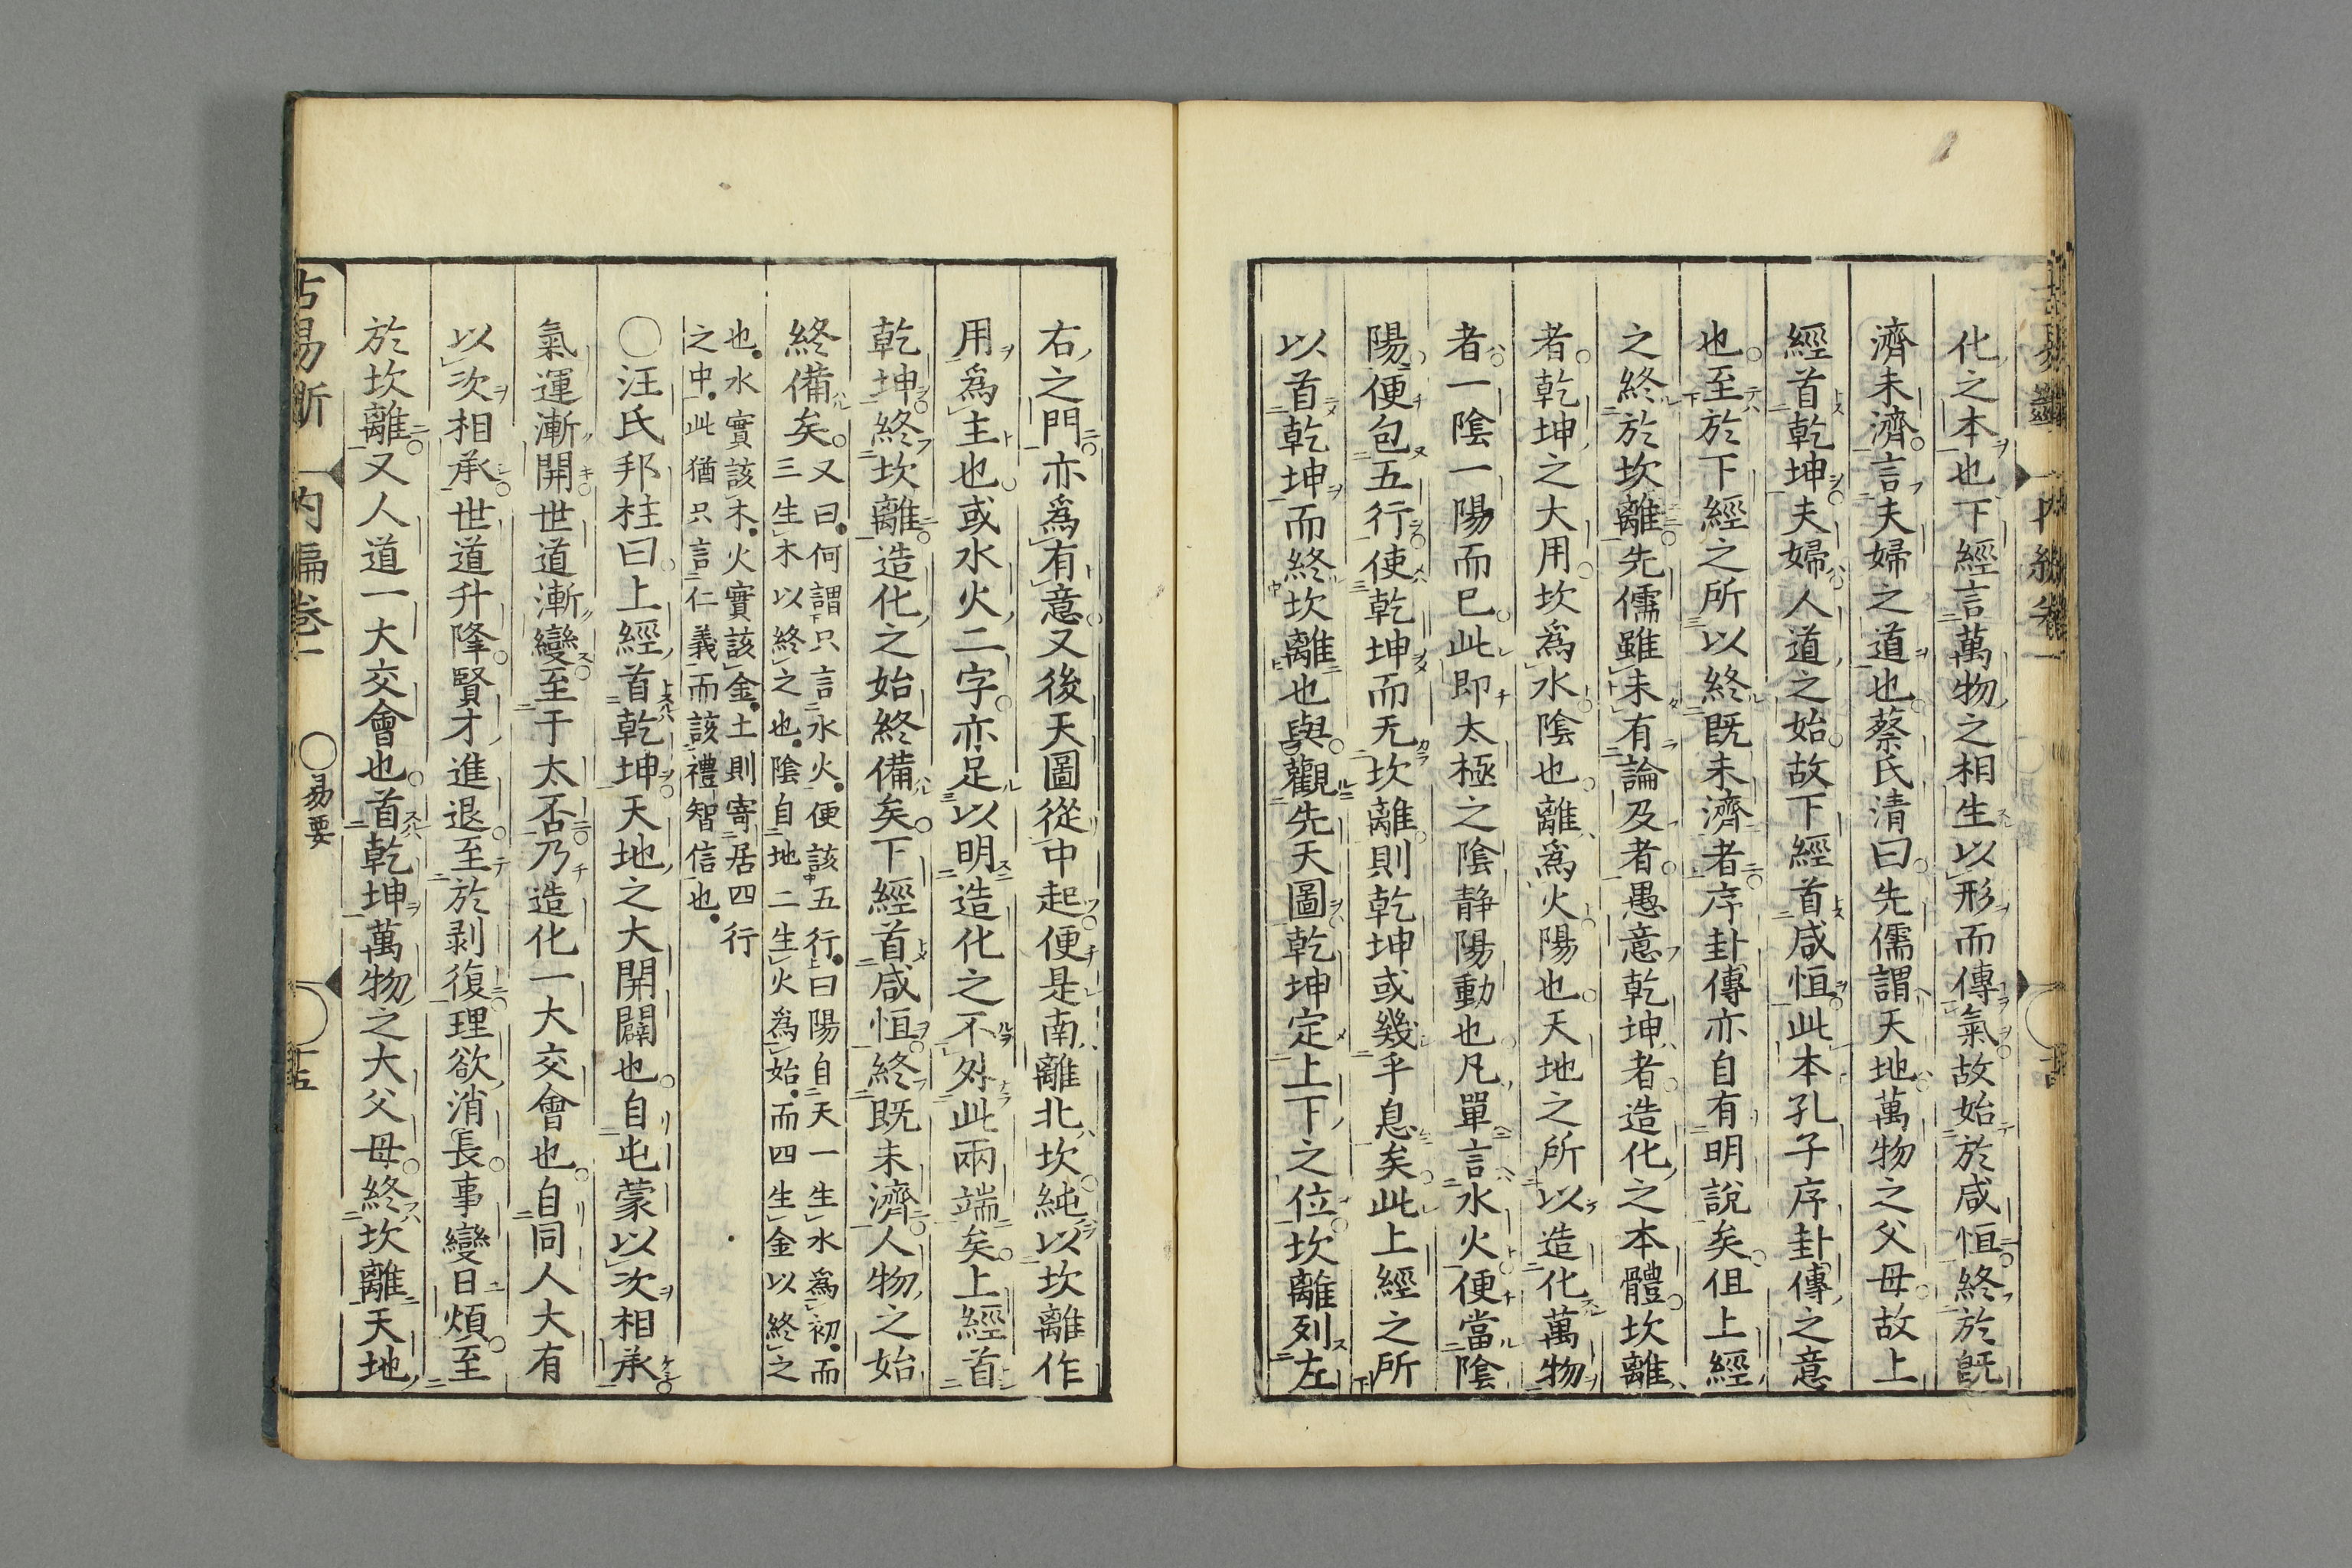 化之本也下經言萬物之相生以形而傳氣故始於咸恒終於旣
濟未濟言夫婦之道也蔡氏清曰先儒謂天地萬物之父母故上
經首乾坤夫婦人道之始故下經首咸恒此本孔子序卦傳之意
也至於下經之所以終既未濟者序卦傳亦自有明說矣但上經
之終於坎離先儒雖未有論及者愚意乾坤者造化之本體坎離
者乾坤之大用坎為水陰也離為火陽也天地之所以造化萬物
者一陰一陽而已此即太極之陰静陽動也凡單言水火便當陰
陽便包五行使乾坤而无坎離則乾坤或幾乎息矣此上經之所
以首乾坤而終坎離也與觀先天圖乾坤定上下之位坎離列左
右之門亦為有意又後天圖從中起便是南離北坎純以坎離作
用為主也或水火二字亦足以明造化之不外此兩端矣上經首
乾坤終坎離造化之始終備矣下經首咸恒終既未濟人物之始
終備矣又曰何謂只言水火便該五行曰陽自天一生水為初而
三生木以終之也陰自地二生火為始而四生金以終之
也水實該木火實該金土則寄居四行
之中此猶只言仁義而該禮智信也
○汪氏邦柱曰上經首乾坤天地之大開闢也自屯蒙以次相承
氣運漸開世道漸變至于太否乃造化一大交會也自同人大有
以次相承世道升降賢才進退至於剥復理欲消長事變日煩至
於坎離又人道一大交會也首乾坤萬物之大父母終坎離天地
古易斷 内編卷一 ○易要